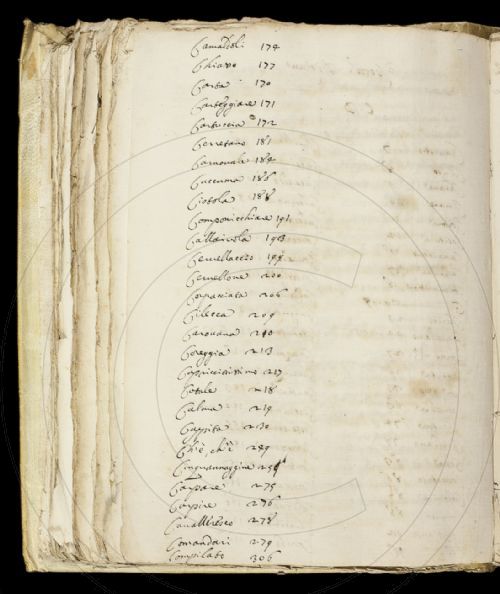 Camaldoli 174
Chiavo 177
Carta 170
Carteggiare 171
Cartuccia 172
Cerretano 181
Carnovale 184
Cuccuma 186
Ciotola 188
Componicchiare 191
193
Cervellaccio 199
Cervellone 200
Corpacciata 206
Cilecca 209
Carovana 210
Coreggia 213
Capriccissimo 217
Cotale 218
Calma 219
Cappita 230
Ch'è, ch'è 249
Cinquannaggine 254
Carpare 275
Carpire 276
Cavalleresco 278
Comandari 279
Compilato 306